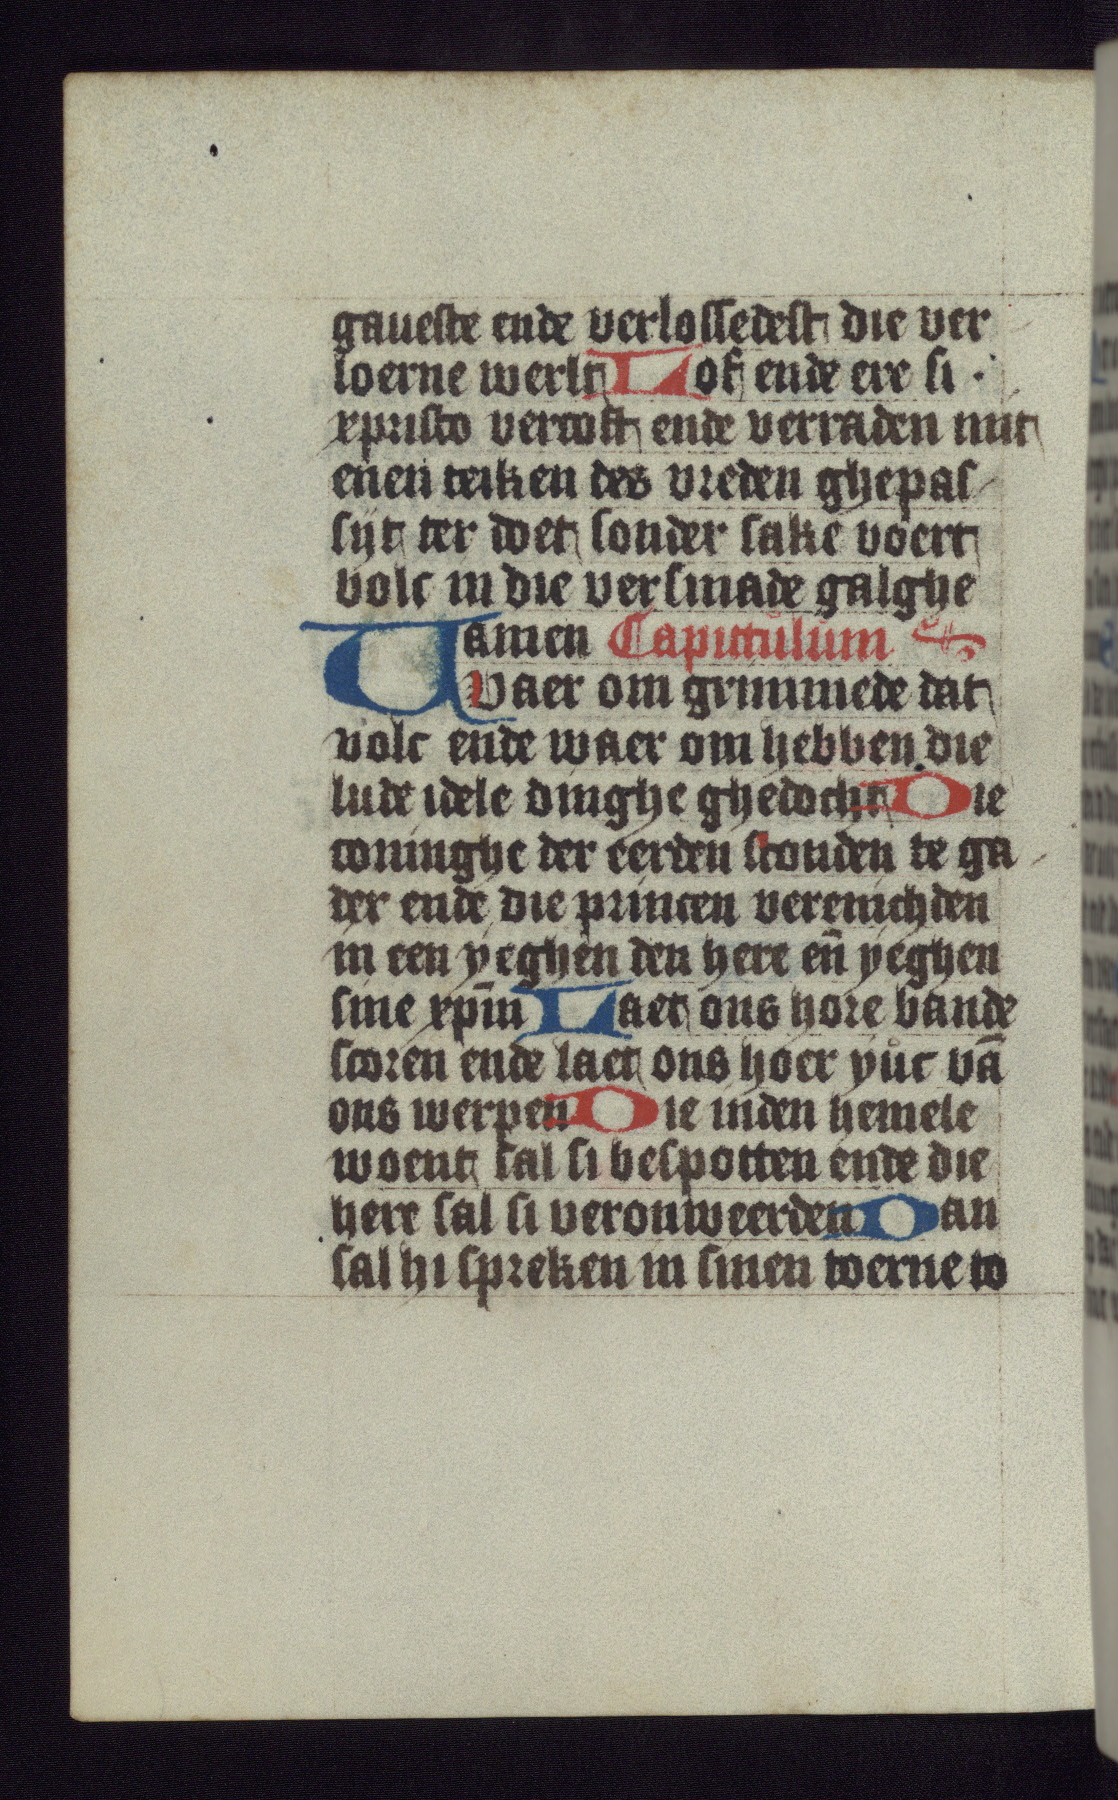 gaueste ende verlossedest die ver
loerne werlt Lof ende ere si ·
xpristo vercoft ende verraden mit
enen teiken des vreden ghepas
sijt ter doet sonder sake voert
volc in die versmade galghe
amen Capittulum
Waer om grimmede dat
volc ende waer om hebben die
lude idele dinghe ghedocht Die
coninghe der eerden stonden te ga
der ende die princen verenichden
in een yeghen den here eñ yeghen
sine xpm̄ Laet ons hore bande
scoren ende laet ons hoer yuc vā
ons werpen Die inden hemele
woent sal si bespotten ende die
here sal si veronweerden Dan
sal hi spreken in sinen toerne to